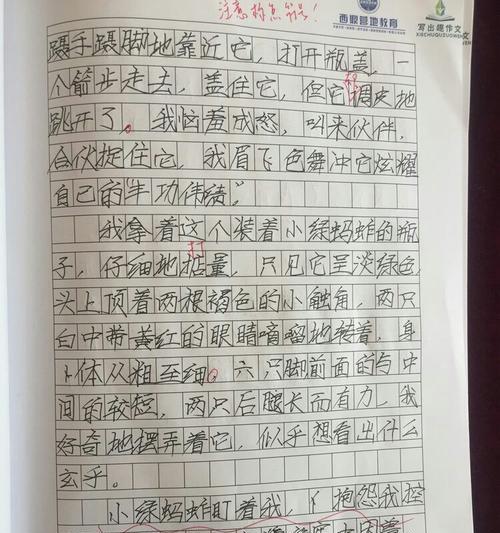 注意标点符号！
西暇营地教育
写出趣作文
XIECHUQUZUOWEN
蹑手蹑脚地靠近它，打开瓶盖，一
个箭步走去，盖住它，但它调皮地
跳开了。我恼羞成怒，叫来伙伴，
合伙捉住它，我眉飞色舞冲它炫耀
自己的“丰功伟绩”
我拿着这个装着小绿蚂蚱的瓶
打
子，仔细地掂量，只见它呈淡绿色，
头上顶着两根褐色的小触角，两只
白中带黄红的眼睛嘀嘀地转着，身
体从粗至细。六只脚前面的与中
间的较短，两只后腿长而有力，我
好奇地摆弄着它，似乎想看出什么
玄乎。
小绿蚂蚱盯着我，抱怨我